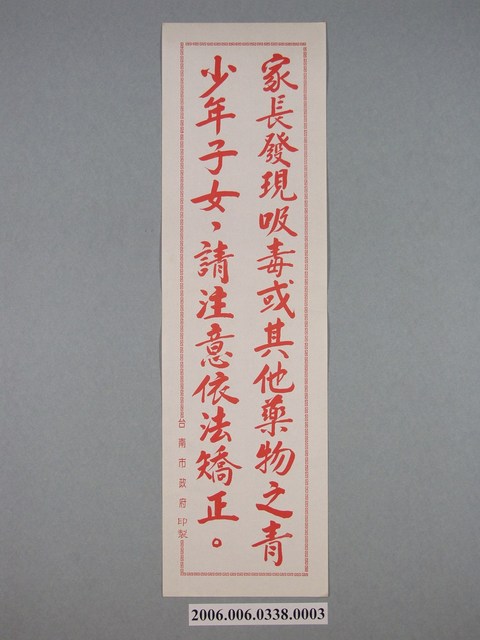 家長發現吸毒或其他藥物之青
少年子女，請注意依法矯正。
台南市政府印製
2006.006.0338.0003